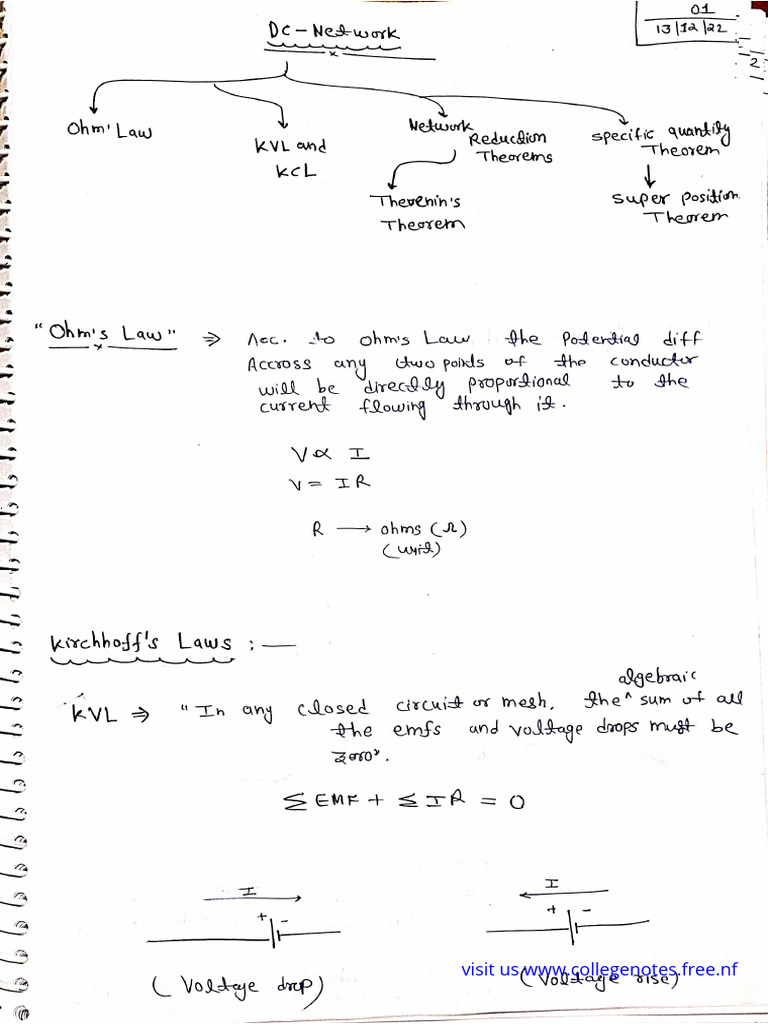 01
13/12/22
2
DC-Network
Ohm' Law
KVL and
KCL
Network
Reduction
Theorems
Thevenin's
Theorem
Specific quantity
Theorem
Super position
Theorem
"Ohm's Law" ⇒ Acc. to Ohm's Law the Potential diff
Accross any two points of the conductor
will be directly proportional to the
current flowing through it.
V ∝ I
V = IR
R → ohms (Ω)
(unit)
Kirchhoff's Laws :—
KVL ⇒ "In any closed circuit or mesh, the ^algebraic sum of all
the emfs and voltage drops must be
zero".
∑EMF + ∑IR = 0
I
+ -
(Voltage drop)
I
+ -
(Voltage rise)
visit us www.collegenotes.free.nf